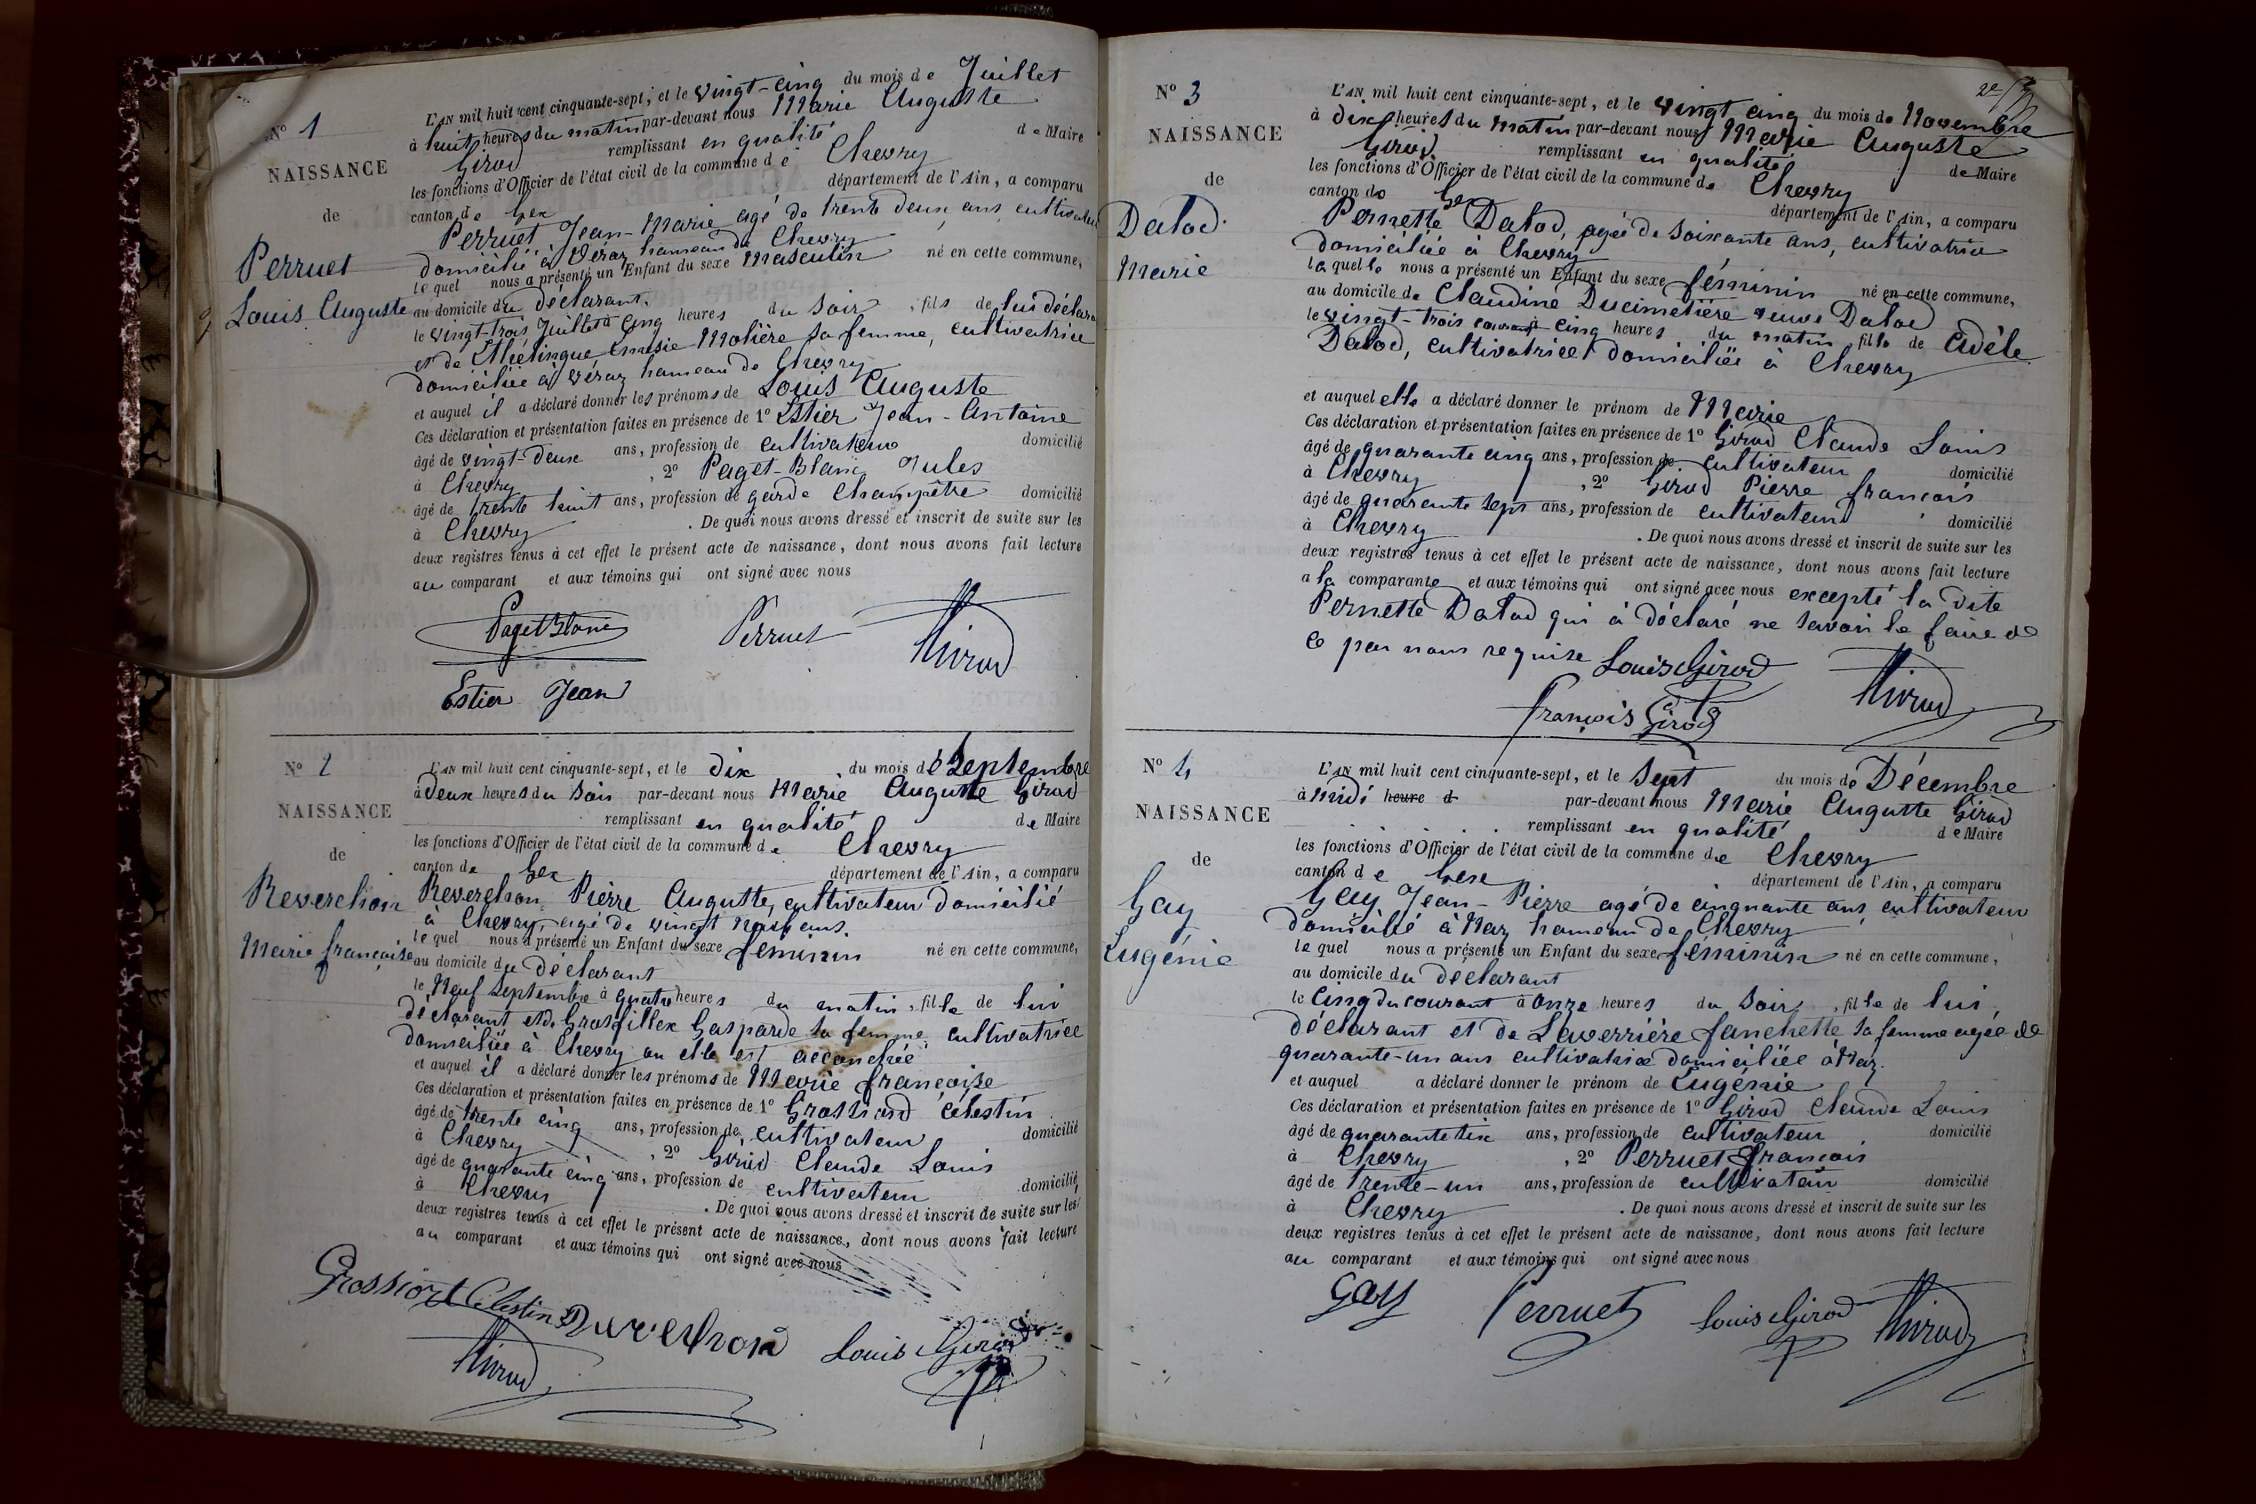 N° 1
NAISSANCE
de
Perruet
Louis Auguste
L'AN mil huit cent cinquante-sept, et le vingt-cinq du mois de Juillet
à huit heures du matin par-devant nous Marie Auguste
Girod remplissant en qualité de Maire
les fonctions d'Officier de l'état civil de la commune de Chevry
canton de Gex département de l'Ain, a comparu
Perruet Jean-Marie agé de trente deux ans, cultivateur
domicilié à Véraz hameau de Chevry
lequel nous a présenté un Enfant du sexe masculin né en cette commune,
au domicile du déclarant.
le vingt-trois Juillet à cinq heures du soir, fils de lui déclara
et de Molière sa femme, cultivatrice
domiciliée à Véraz hameau de Chevry
et auquel il a déclaré donner les prénoms de Louis Auguste
Ces déclaration et présentation faites en présence de 1° Estier Jean-Antoine
âgé de vingt-deux ans, profession de cultivateur domicilié
à Chevry, 2° Paget-Blanc Jules
âgé de trente huit ans, profession de garde Champêtre domicilié
à Chevry. De quoi nous avons dressé et inscrit de suite sur les
deux registres tenus à cet effet le présent acte de naissance, dont nous avons fait lecture
au comparant et aux témoins qui ont signé avec nous
Paget Blanc Perruet Girod
Estier Jean
N° 2
NAISSANCE
de
Reverchon
Marie françoise
L'AN mil huit cent cinquante-sept, et le dix du mois de Septembre
à deux heures du soir par-devant nous Marie Auguste Girod
remplissant en qualité de Maire
les fonctions d'Officier de l'état civil de la commune de Chevry
canton de Gex département de l'Ain, a comparu
Reverchon Pièrre Auguste, cultivateur domicilié
à Chevry, agé de vingt neuf ans.
lequel nous a présenté un Enfant du sexe féminin né en cette commune,
au domicile du déclarant
le Neuf Septembre à quatre heures du matin, fille de lui
déclarant et de Grosfillex Gasparde sa femme cultivatrice
domiciliée à Chevry ou elle est accouchée
et auquel il a déclaré donner les prénoms de Marie françoise
Ces déclaration et présentation faites en présence de 1° Grossiord Célestin
âgé de trente cinq ans, profession de cultivateur domicilié
à Chevry, 2° Girod Claude Louis
âgé de quarante cinq ans, profession de cultivateur domicilié
à Chevry. De quoi nous avons dressé et inscrit de suite sur les
deux registres tenus à cet effet le présent acte de naissance, dont nous avons fait lecture
au comparant et aux témoins qui ont signé avec nous
Grossiord Célestin Reverchon Louis Girod
Girod
N° 3
NAISSANCE
de
Dalod
Marie
L'AN mil huit cent cinquante-sept, et le vingt cinq du mois de Novembre
à dix heures du matin par-devant nous Marie Auguste
Girod remplissant en qualité de Maire
les fonctions d'Officier de l'état civil de la commune de Chevry
canton de Gex département de l'Ain, a comparu
Pernette Dalod, agée de soixante ans, cultivatrice
domiciliée à Chevry
laquelle nous a présenté un Enfant du sexe féminin né en cette commune,
au domicile de Claudine Ducimetière veuve Dalod
le vingt-trois courant à cinq heures du matin, fille de Adèle
Dalod, cultivatrice domiciliée à Chevry
et auquel elle a déclaré donner le prénom de Marie
Ces déclaration et présentation faites en présence de 1° Girod Claude Louis
âgé de quarante cinq ans, profession de cultivateur domicilié
à Chevry, 2° Girod Pierre françois
âgé de quarante sept ans, profession de cultivateur domicilié
à Chevry. De quoi nous avons dressé et inscrit de suite sur les
deux registres tenus à cet effet le présent acte de naissance, dont nous avons fait lecture
a la comparante et aux témoins qui ont signé avec nous excepté la dite
Pernette Dalod qui à déclaré ne savoir le faire de
ce par nous requise Louis Girod Girod
François Girod
N° 4
NAISSANCE
de
Gay
Eugénie
L'AN mil huit cent cinquante-sept, et le sept du mois de Décembre
à midi heure d par-devant nous Marie Auguste Girod
remplissant en qualité de Maire
les fonctions d'Officier de l'état civil de la commune de Chevry
canton de Gex département de l'Ain, a comparu
Gay Jean-Pierre agé de cinquante ans, cultivateur
domicilié à Naz hameau de Chevry
lequel nous a présenté un Enfant du sexe féminin né en cette commune,
au domicile du déclarant
le cinq du courant à onze heures du soir, fille de lui
déclarant et de Laverrière fanchette sa femme agée de
quarante-un ans cultivatrice domiciliée à Naz.
et auquel a déclaré donner le prénom de Eugénie
Ces déclaration et présentation faites en présence de 1° Girod Claude Louis
âgé de quarante six ans, profession de cultivateur domicilié
à Chevry, 2° Perruet françois
âgé de trente-un ans, profession de cultivateur domicilié
à Chevry. De quoi nous avons dressé et inscrit de suite sur les
deux registres tenus à cet effet le présent acte de naissance, dont nous avons fait lecture
au comparant et aux témoins qui ont signé avec nous
Gay Perruet Louis Girod Girod